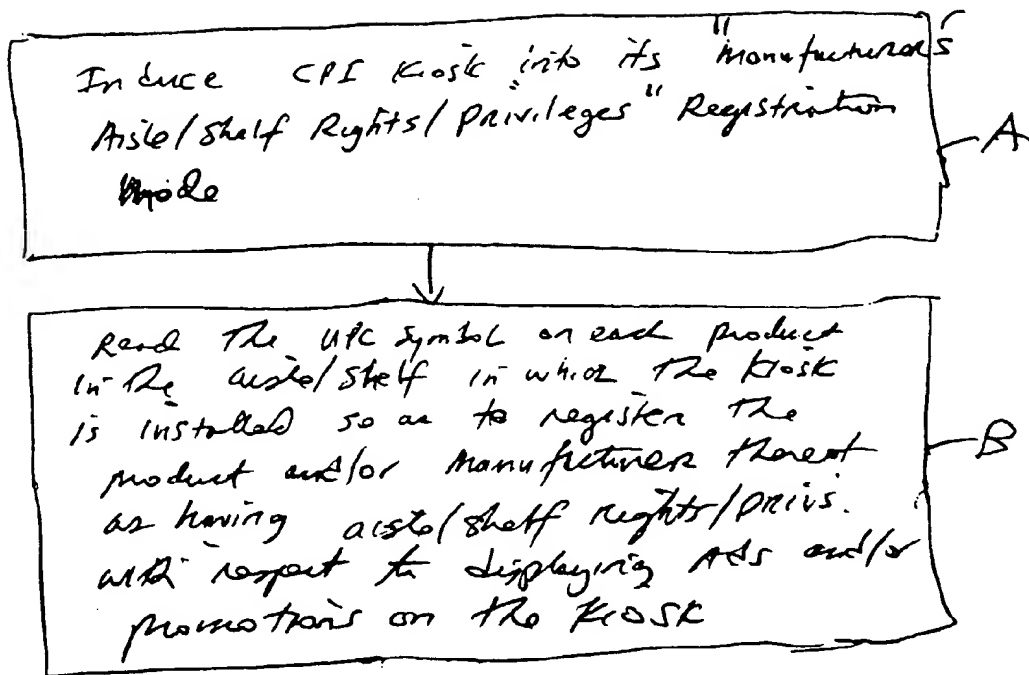 Induce CPI Kiosk into its "Manufacturers'
Aisle/Shelf Rights/Privileges" Registration
Mode
A
Read The UPC symbol on each product
in the aisle/shelf in which The Kiosk
is installed so as to register the
product and/or Manufacturer thereof
as having aisle/shelf rights/privs.
with respect to displaying Ads and/or
promotions on the Kiosk
B